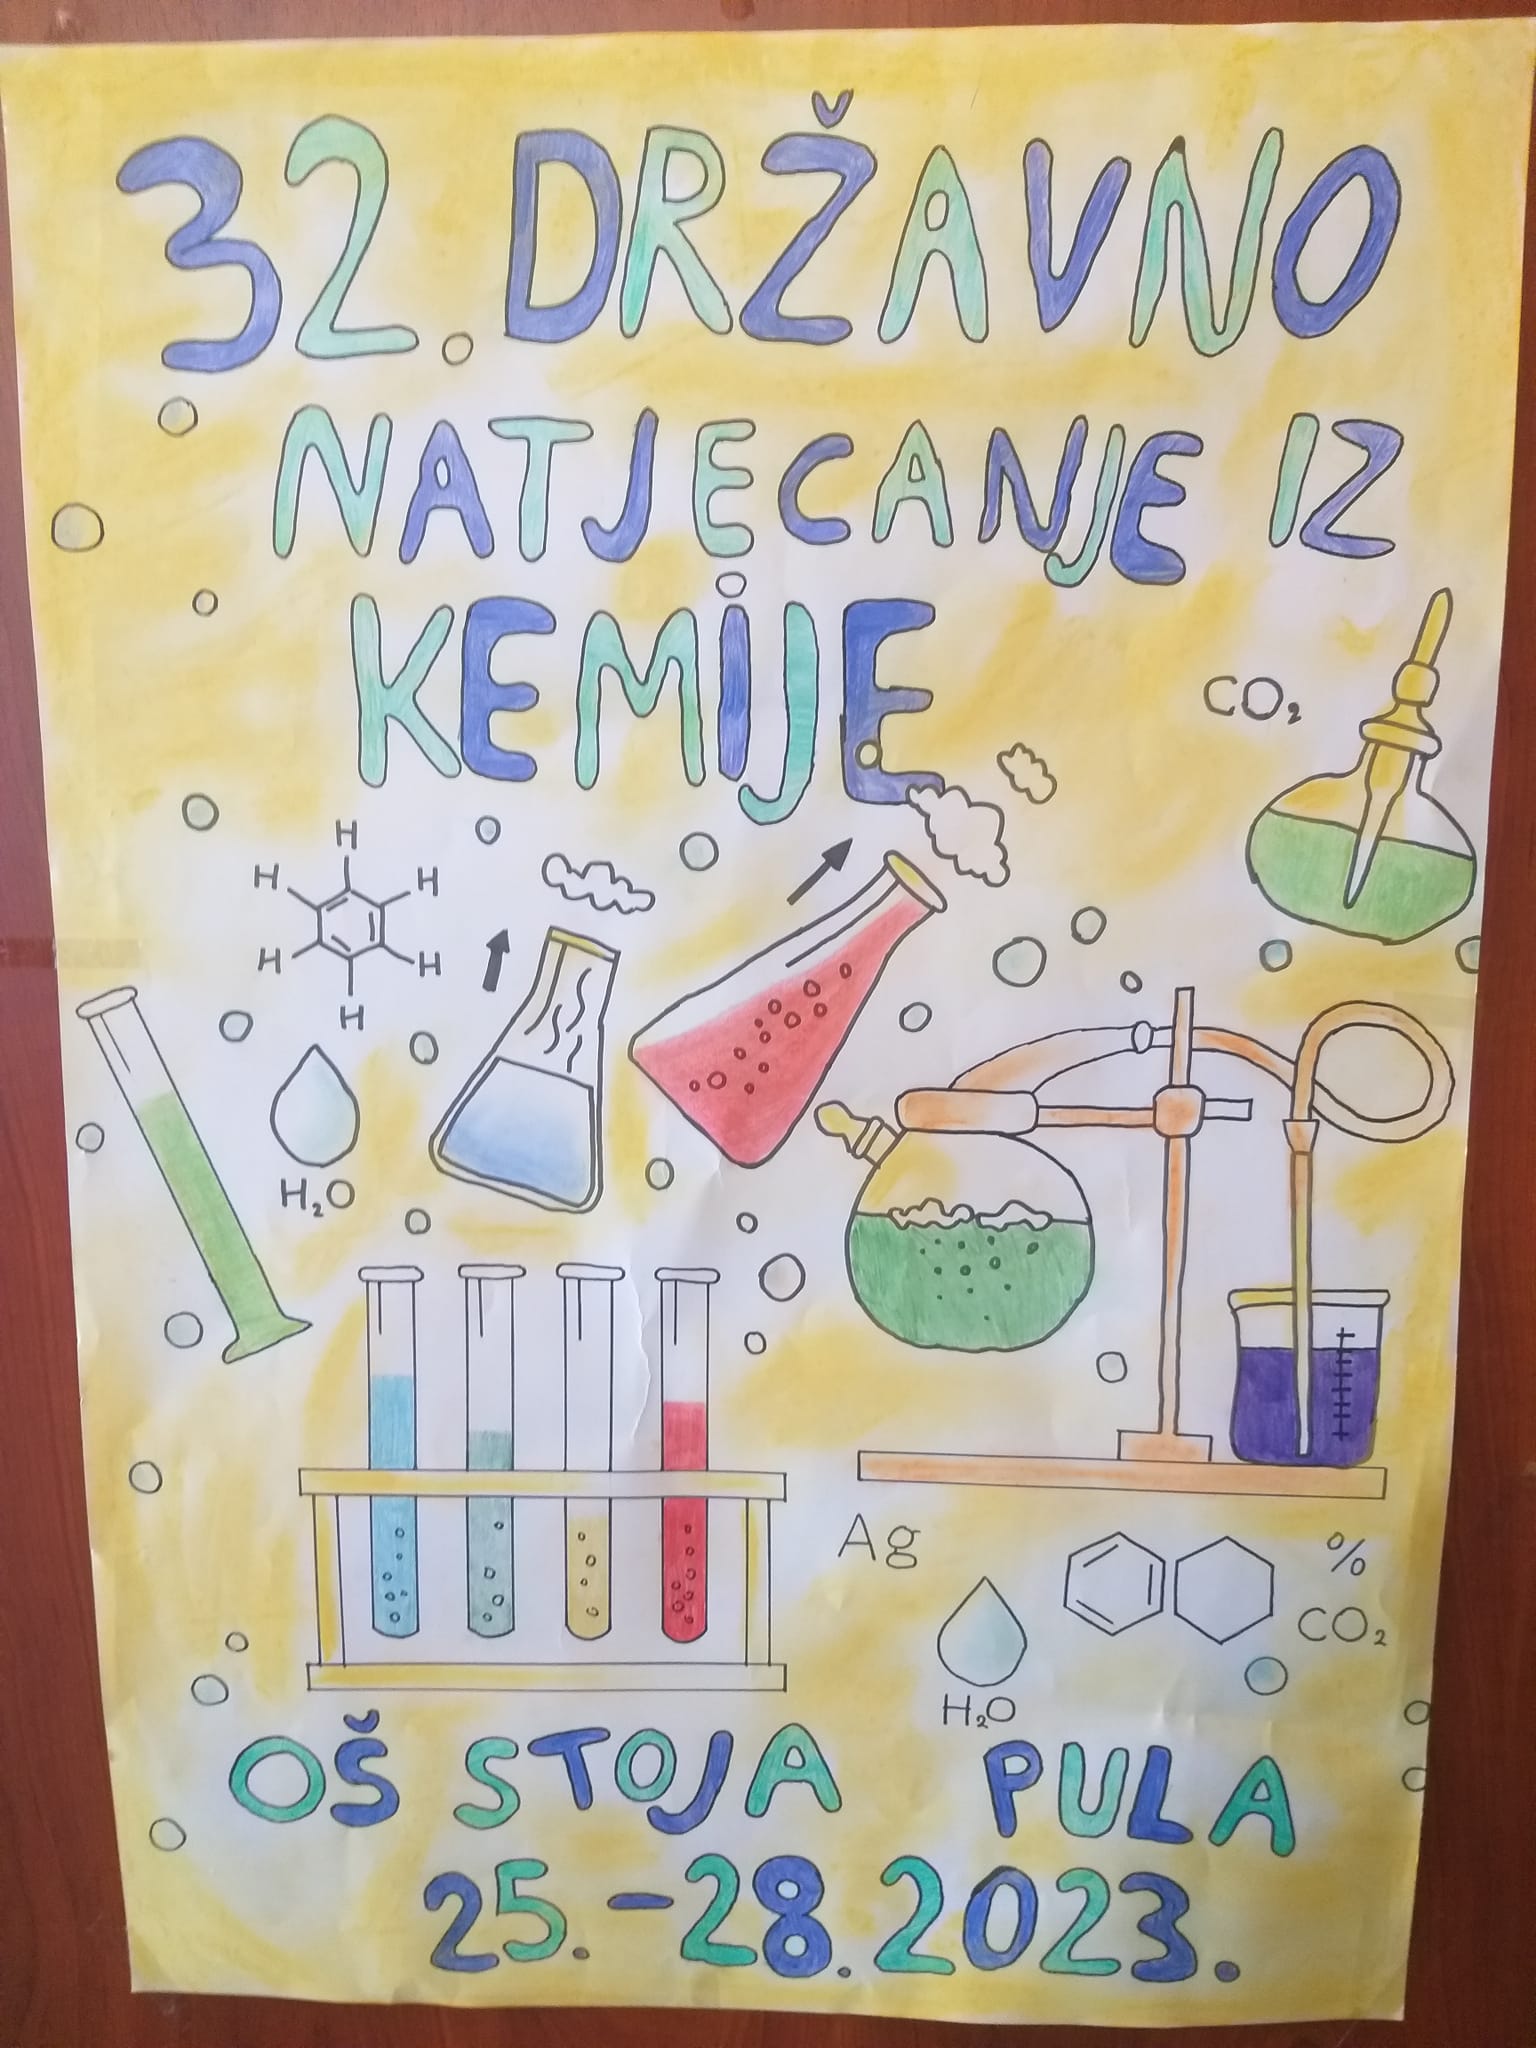 32. DRŽAVNO
NATJECANJE IZ
KEMIJE
CO₂
H
H H
H H
H
H₂O
Ag
%
CO₂
H₂O
OŠ STOJA PULA
25.-28.2023.